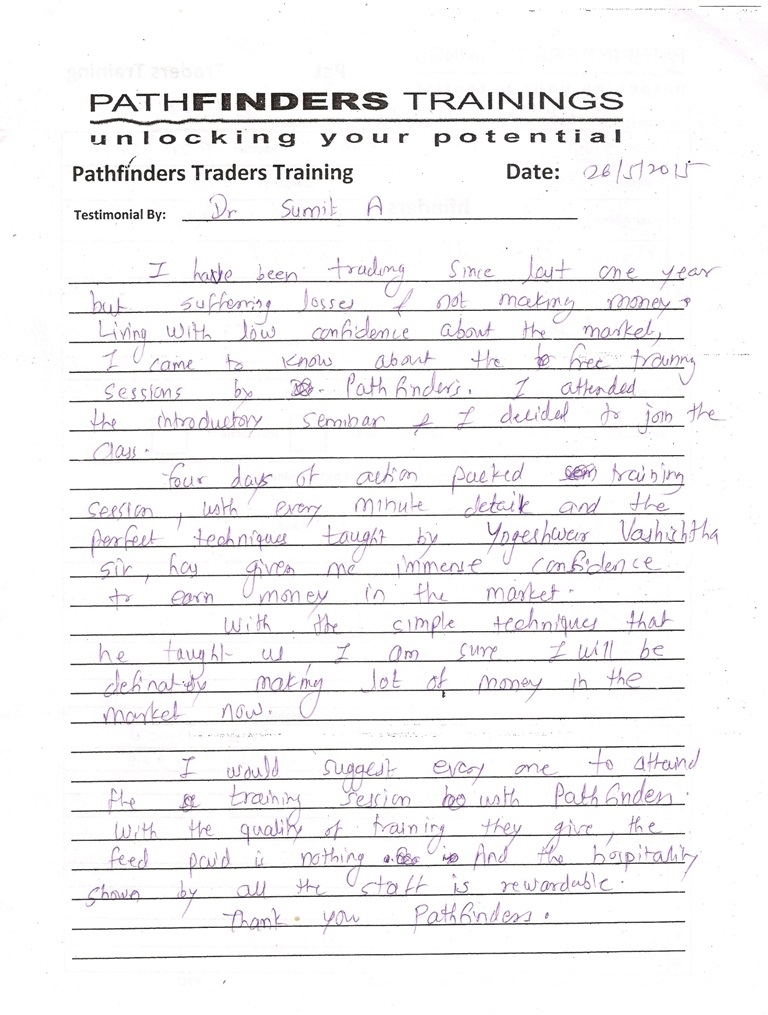 PATHFINDERS TRAININGS
unlocking your potential
Pathfinders Traders Training Date: 26/5/2015
Testimonial By: Dr Sumit A
I have been trading since last one year
but suffering losses & not making money.
Living with low confidence about the market,
I came to know about the free training
sessions by Pathfinders. I attended
the introductory seminar & I decided to join the
class.
four days of action packed training
session, with every minute detail and the
perfect techniques taught by Yogeshwar Vashishtha
sir, has given me immense confidence
to earn money in the market.
With the simple techniques that
he taught us I am sure I will be
definately making lot of money in the
market now.
I would suggest every one to attaind
the training session with Pathfinders.
With the quality of training they give, the
feed paid is nothing And the hospitality
shown by all the staff is rewardable.
Thank you Pathfinders.